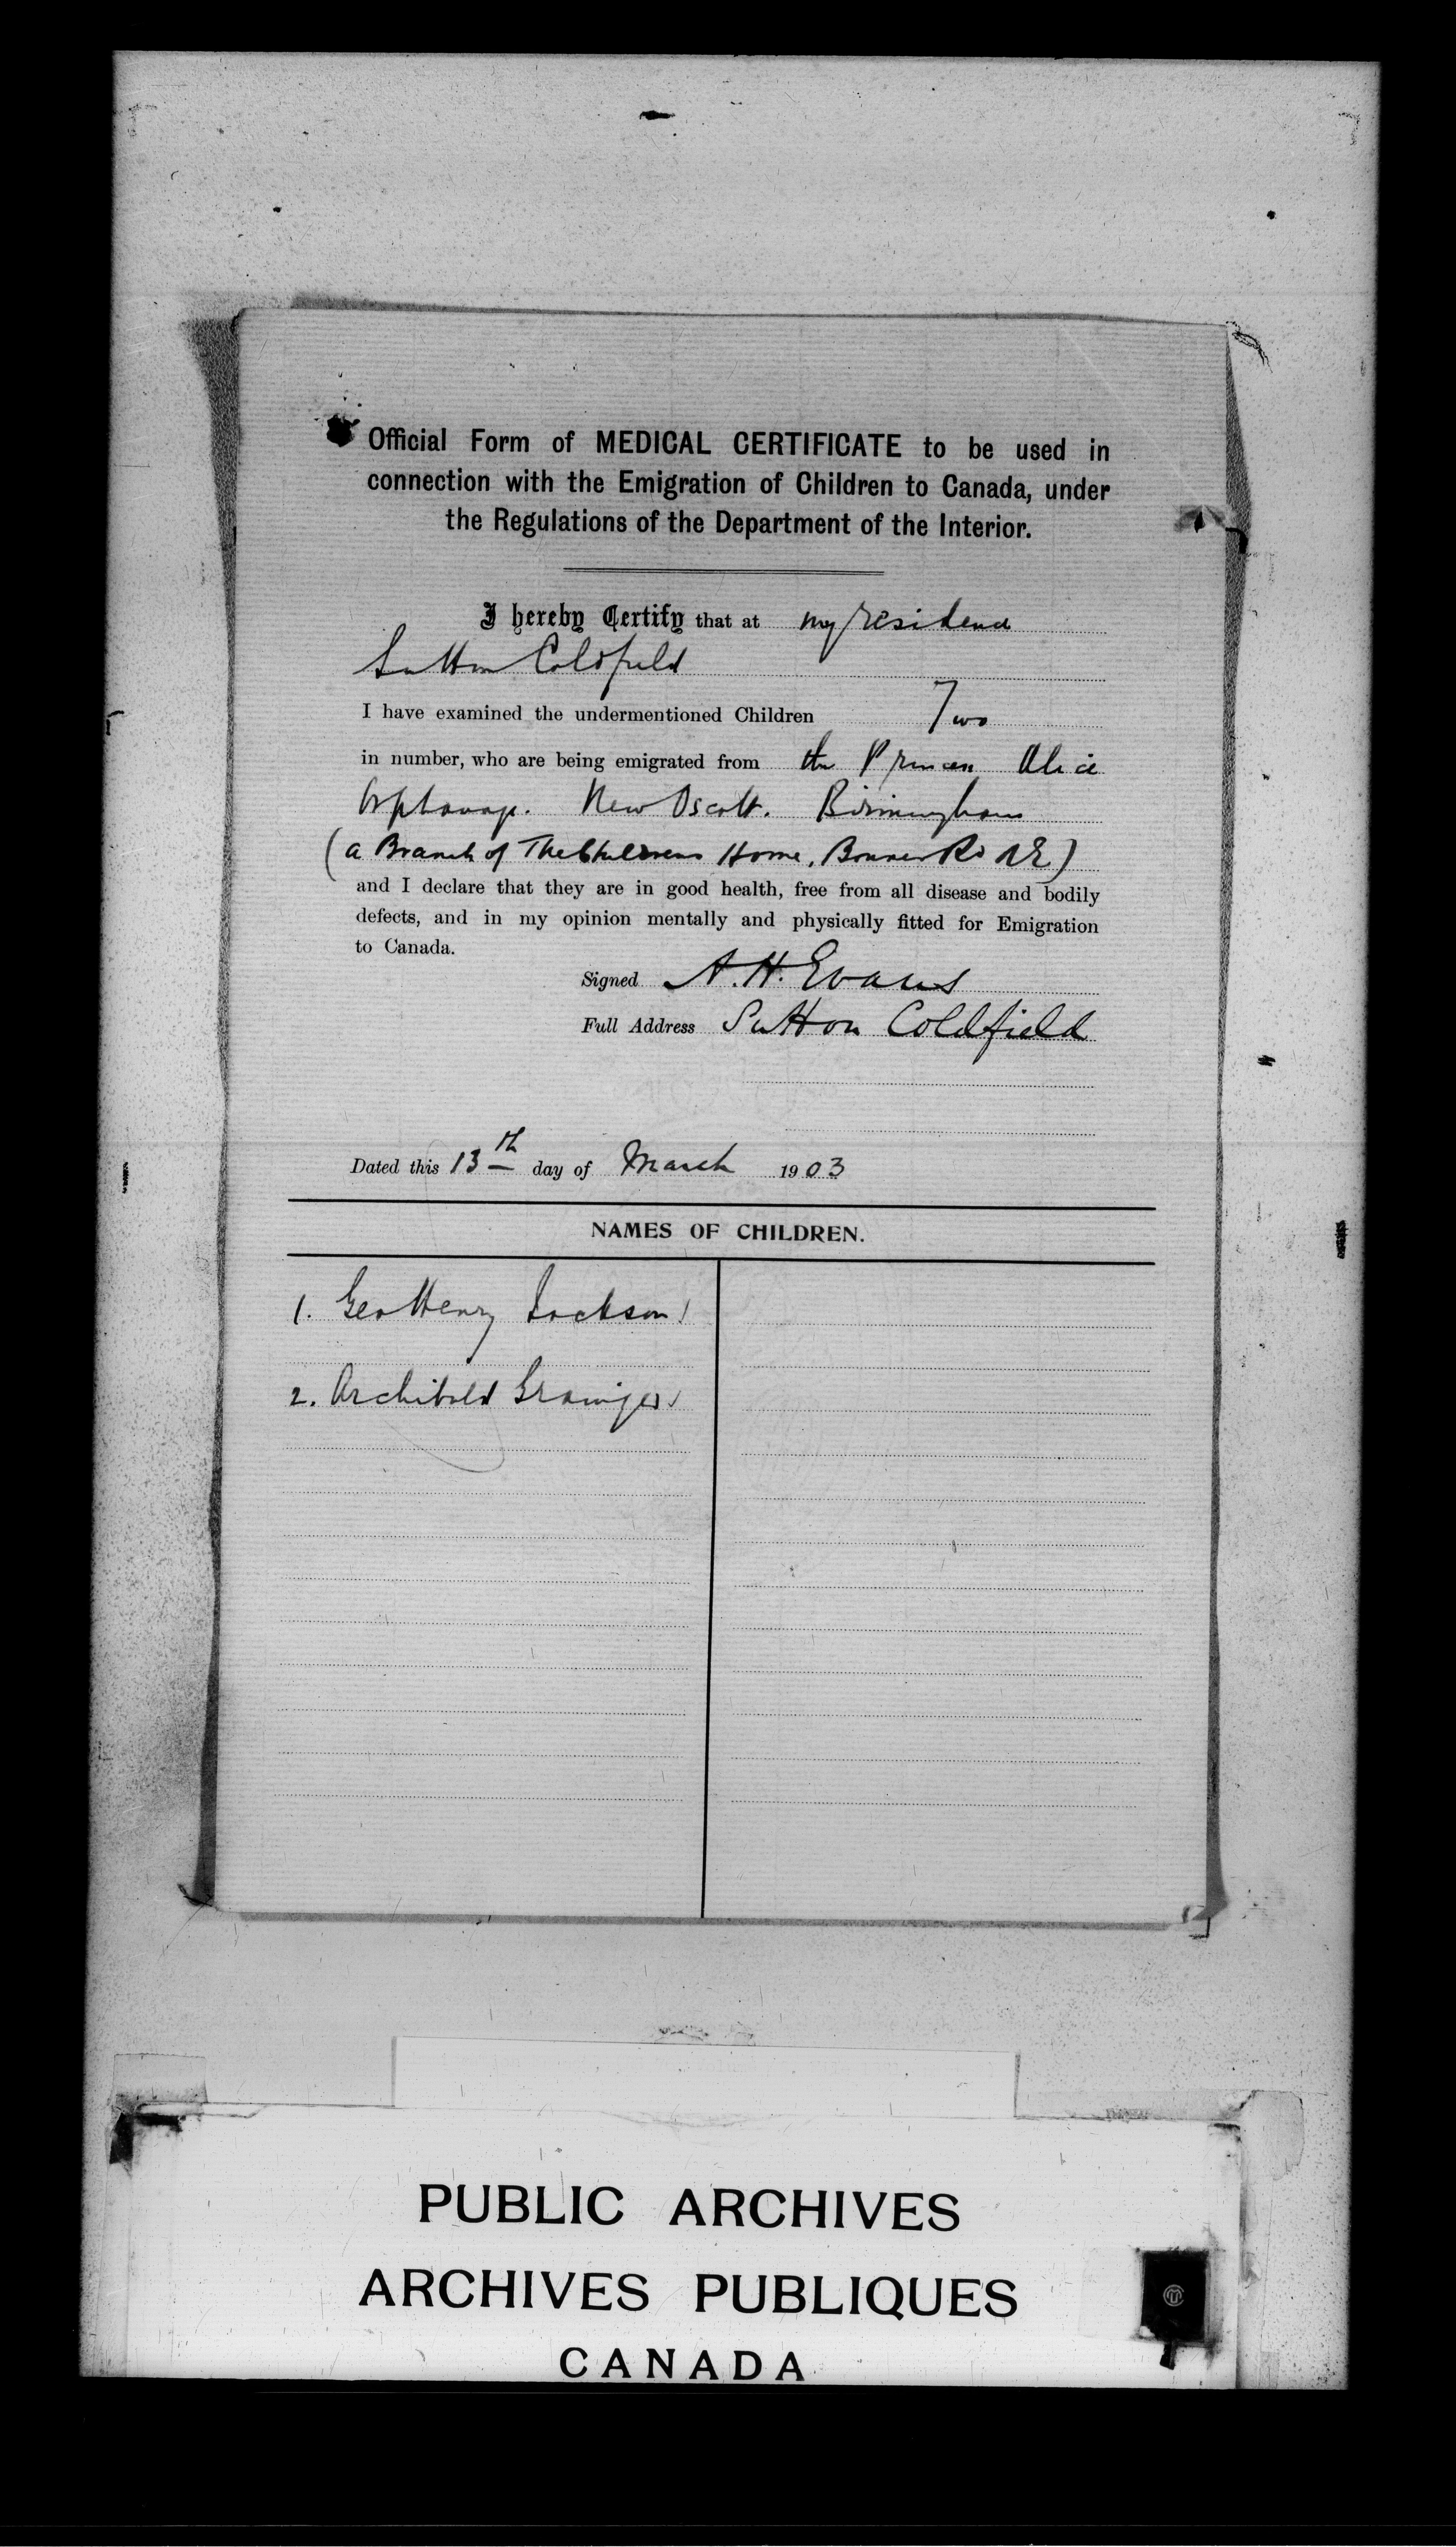 Official Form of MEDICAL CERTIFICATE to be used in
connection with the Emigration of Children to Canada, under
the Regulations of the Department of the Interior.
I hereby Certify that at my residence
Sutton Coldfield
I have examined the undermentioned Children Two
in number, who are being emigrated from the Princess Alice
Orphanage. New Oscott. Birmingham
(a Branch of The Childrens Home, Bonner Rd N.E.)
and I declare that they are in good health, free from all disease and bodily
defects, and in my opinion mentally and physically fitted for Emigration
to Canada.
Signed A. H. Evans
Full Address Sutton Coldfield
Dated this 13th day of March 1903
NAMES OF CHILDREN.
1. Geo Henry Jackson
2. Archibald Grainger
PUBLIC ARCHIVES
ARCHIVES PUBLIQUES
CANADA